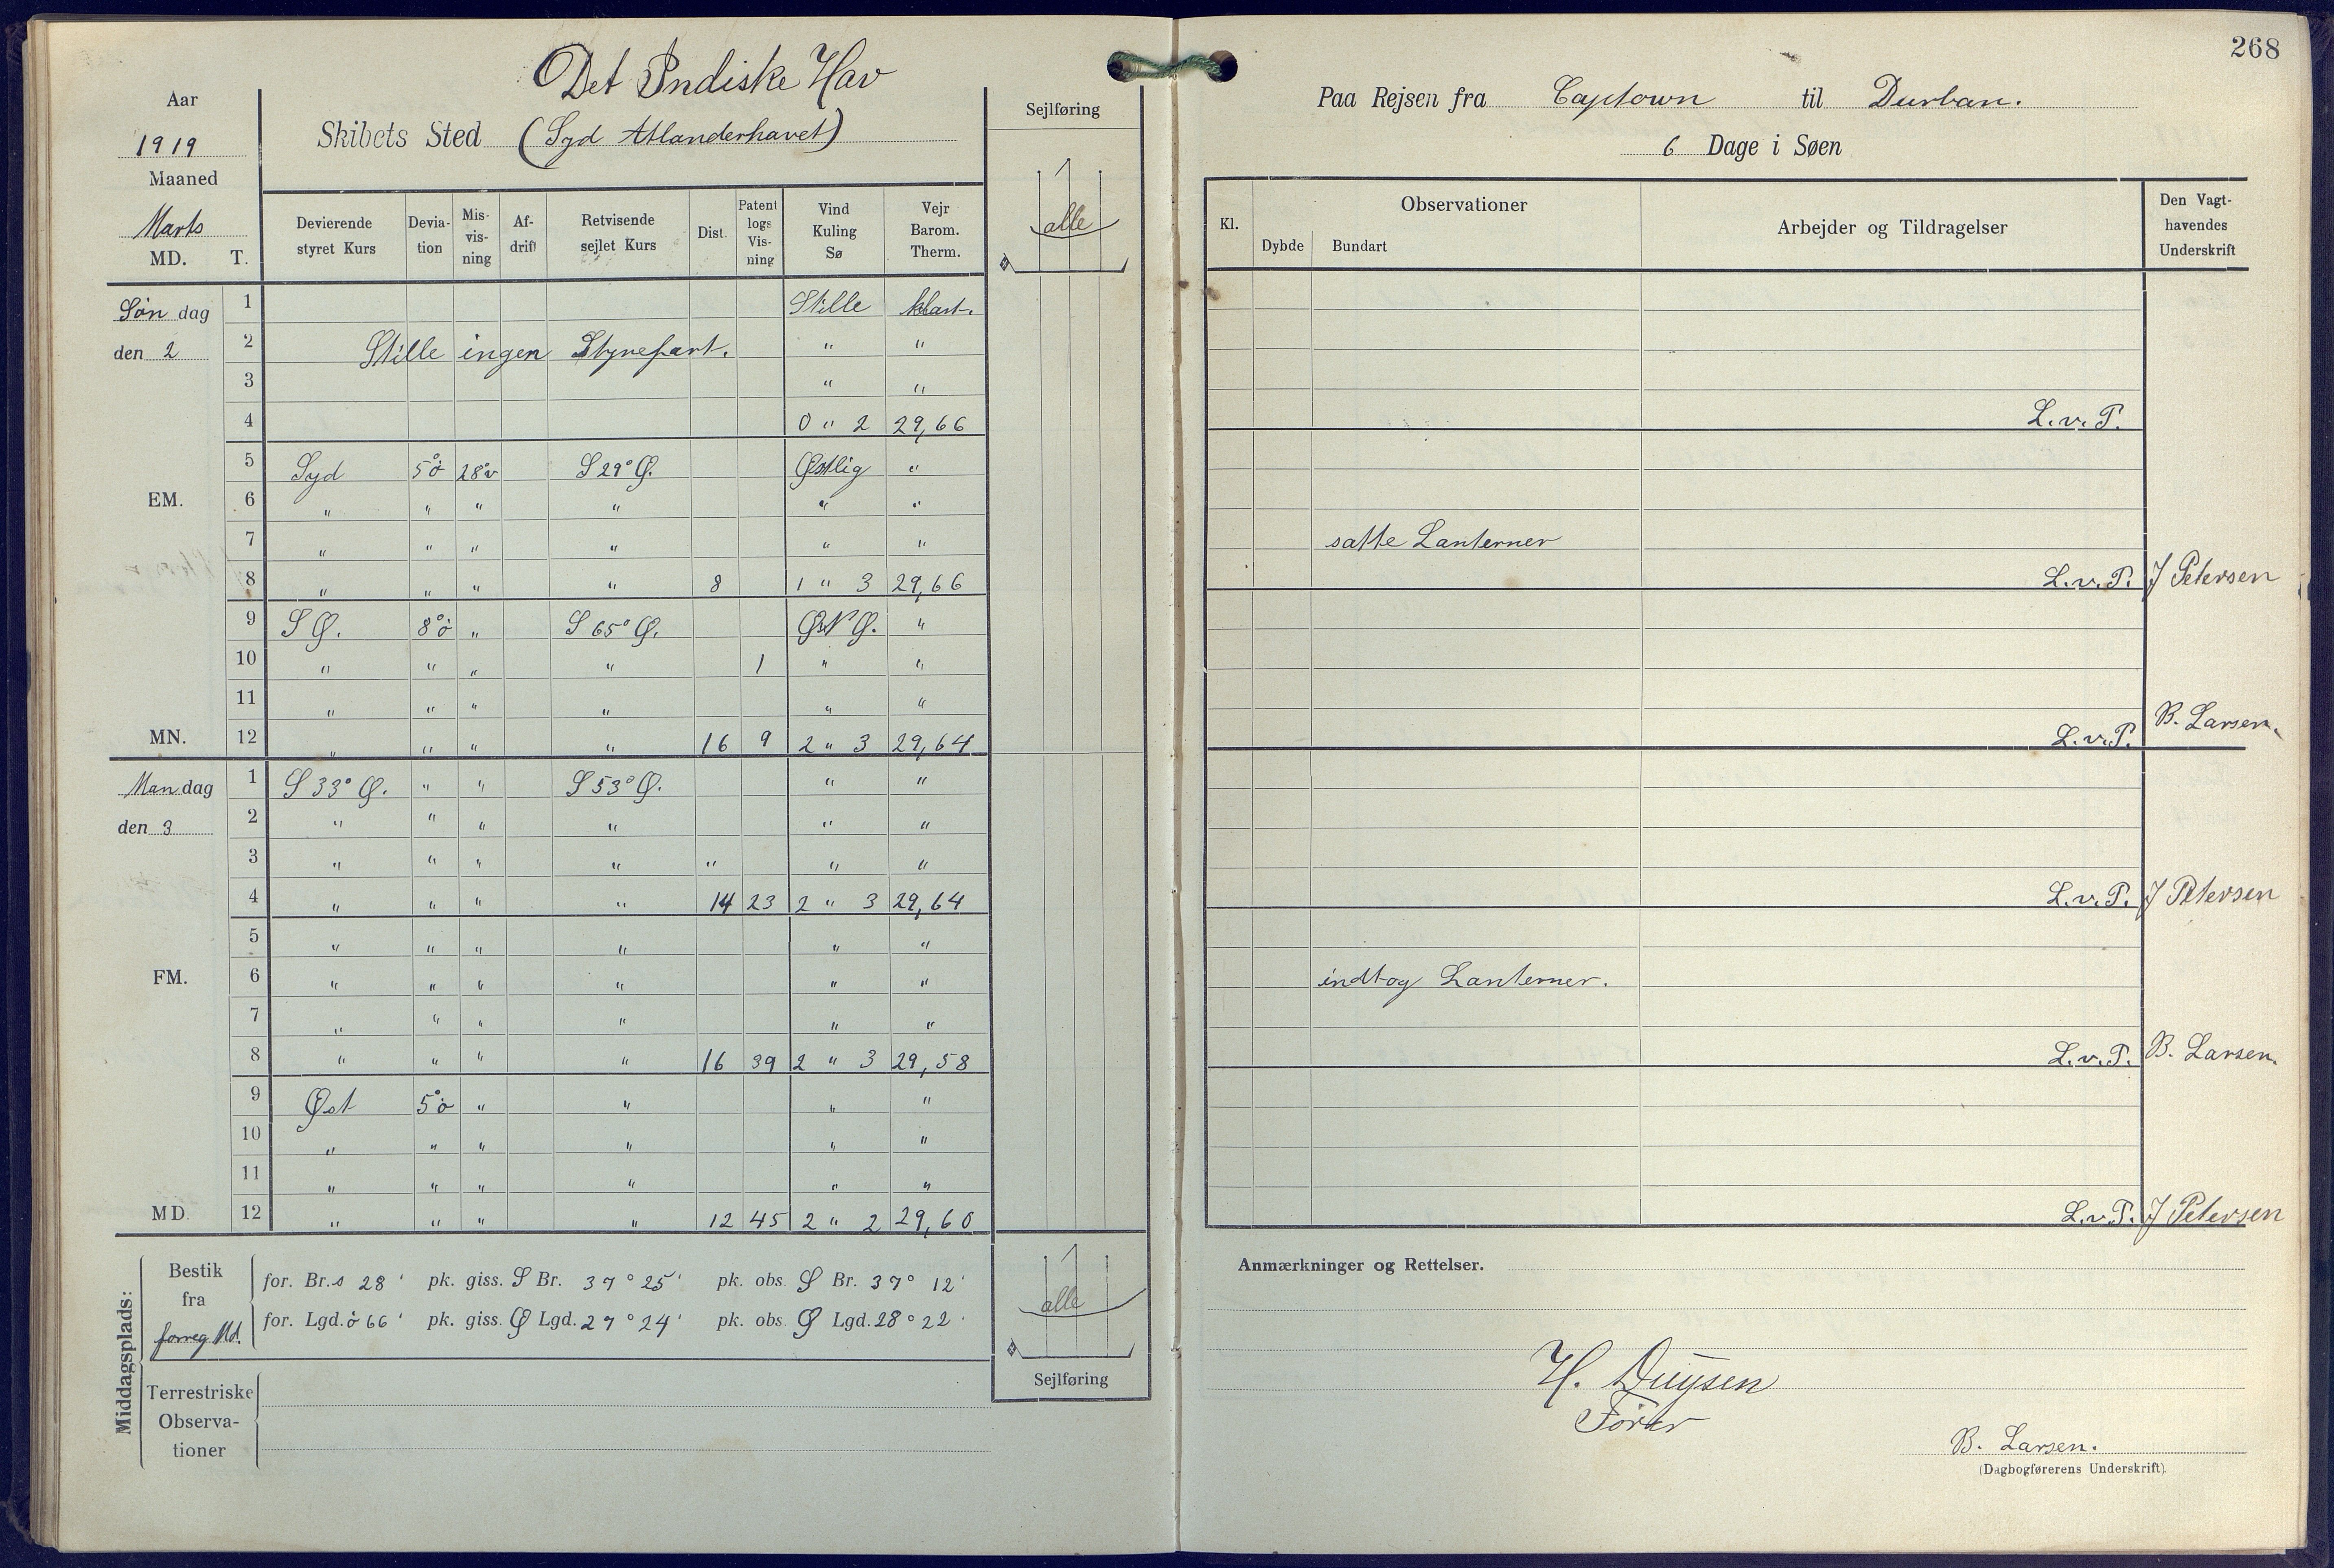 Det Indiske Hav
Aar
1919
Skibets Sted (Syd Atlanderhavet)
Sejlføring
alle
Maaned
Marts
MD. T. Devierende styret Kurs Devia-tion Mis-vis-ning Af-drift Retvisende sejlet Kurs Dist. Patent logs Vis-ning Vind Kuling Sø Vejr Barom. Therm.
Søndag 1 Stille klart.
den 2 2 Stille ingen Styrefart. " "
3 " "
4 0 " 2 29,66
5 Syd 5°ö 28°v S 29° Ø. Østlig "
EM. 6 " " " " " "
7 " " " " " "
8 " " " " 8 1 " 3 29,66
9 S Ø. 8°ö " S 65° Ø. ØNØ. "
10 " " " " 1 " "
11 " " " " " "
MN. 12 " " " " 16 9 2 " 3 29,64
Mandag 1 S 33° Ø. " " S 53° Ø. " "
den 3 2 " " " " " "
3 " " " " " " "
4 " " " " 14 23 2 " 3 29,64
5 " " " " " "
FM. 6 " " " " " "
7 " " " " " "
8 " " " " 16 39 2 " 3 29,58
9 Øst 5°ö " " " "
10 " " " " " "
11 " " " " " "
MD. 12 " " " " 12 45 2 " 2 29,60
Middagsplads:
Bestik fra forreg Md.
for. Br. s 28 ' pk. giss. S Br. 37 ° 25 ' pk. obs. S Br. 37 ° 12 '
for. Lgd. ö 66 ' pk. giss. Ø Lgd. 27 ° 24 ' pk. obs. Ø Lgd. 28 ° 22 '
Terrestriske Observa-tioner
alle
Sejlføring
268
Paa Rejsen fra Captown til Durban.
6 Dage i Søen
Kl. Observationer Dybde Bundart Arbejder og Tildragelser Den Vagt-havendes Underskrift
L.v.P.
satte Lanterner
L.v.P. J Petersen
L.v.P. B. Larsen.
L.v.P. J Petersen
indtog Lanterner.
L.v.P. B. Larsen.
L.v.P. J Petersen
Anmærkninger og Rettelser.
H. Duysen
Fører
B. Larsen.
(Dagbogførerens Underskrift).